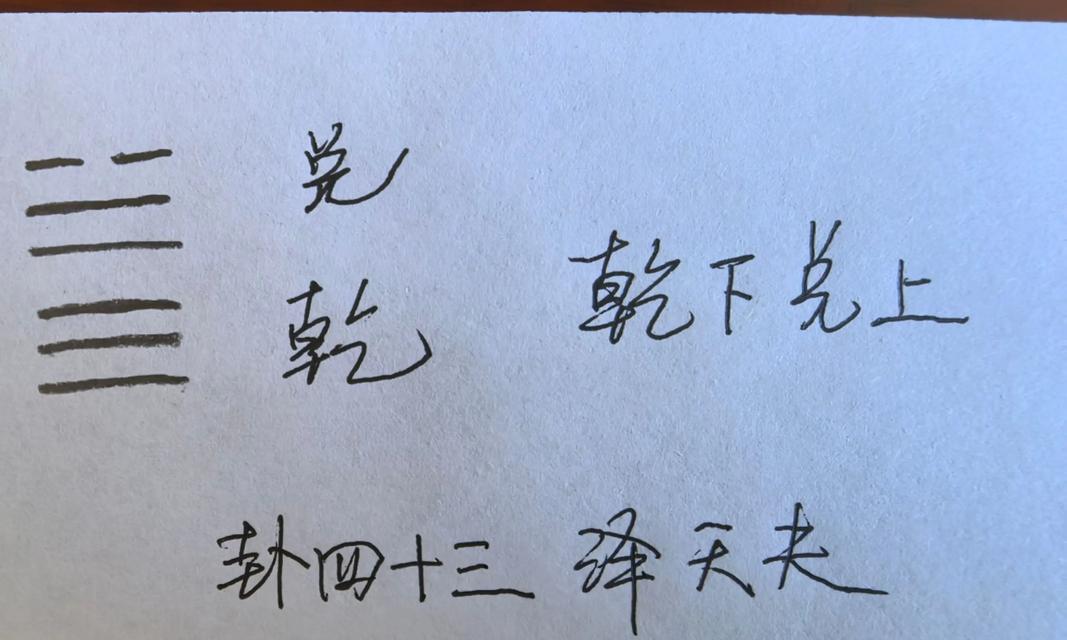 兑
乾
乾下兑上
卦四十三 泽天夬